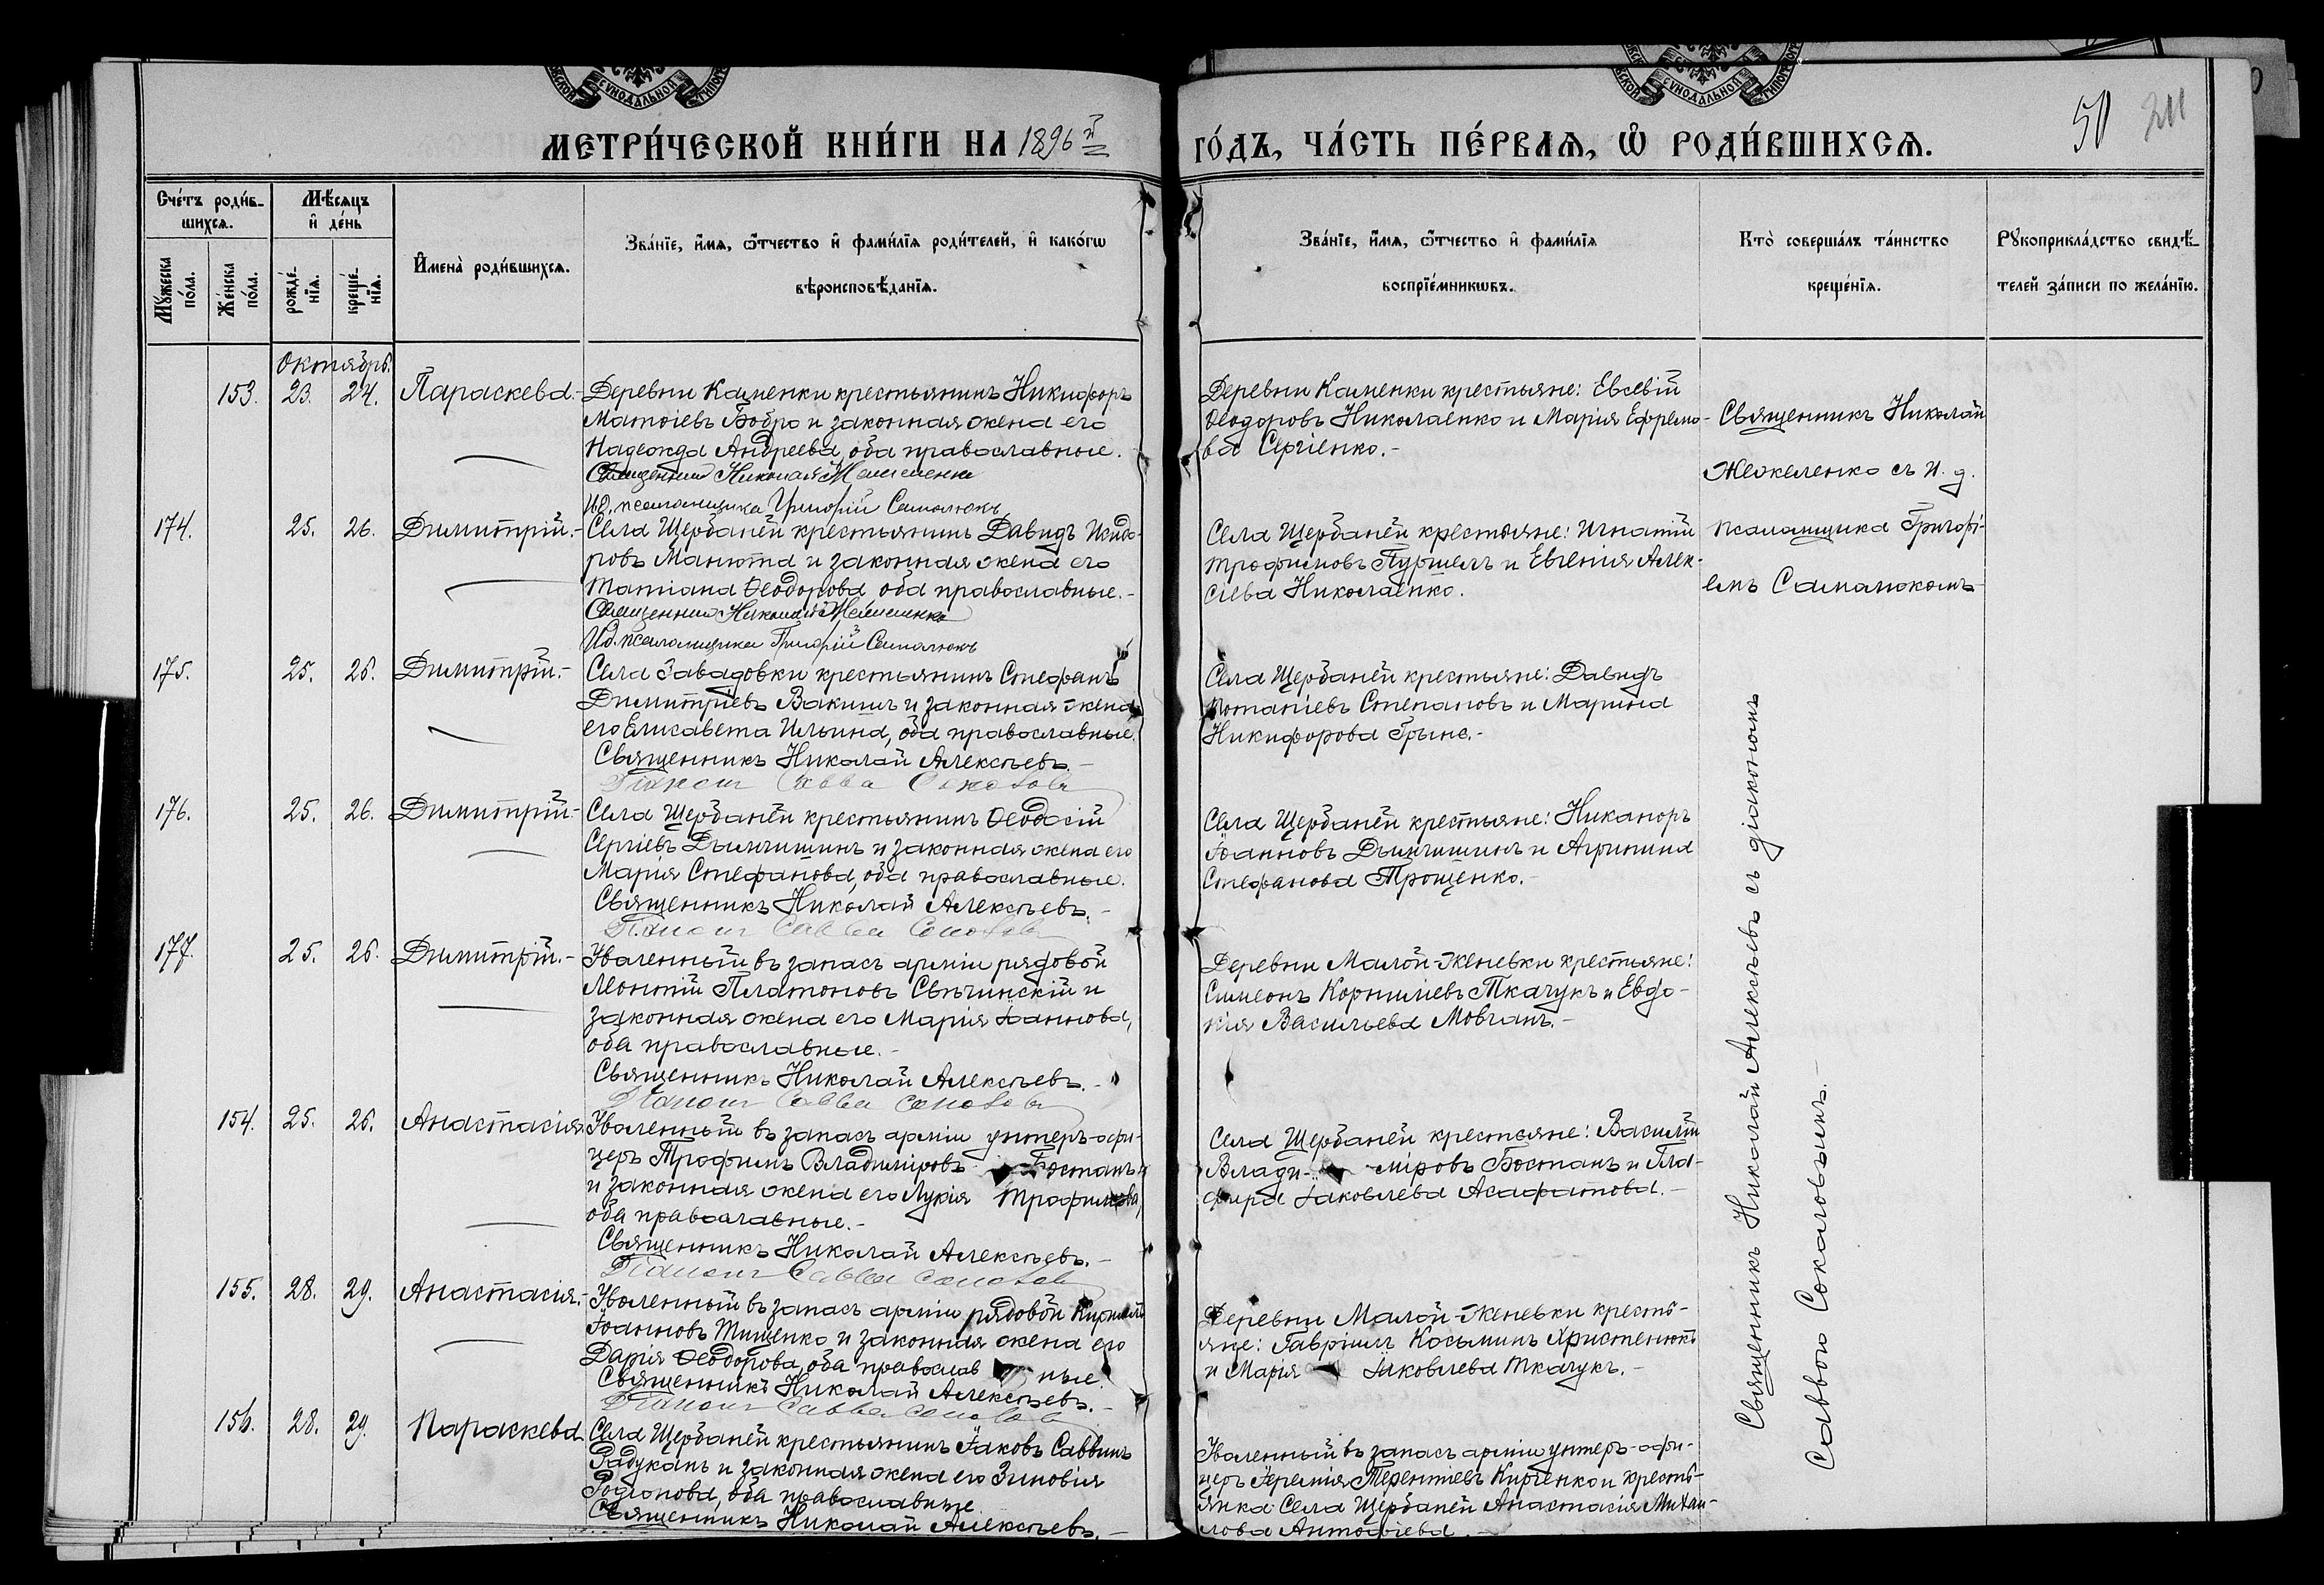 СѴНОДАЛЬНОЙ
СѴНОДАЛЬНОЙ
МЕТРИ́ЧЕСКОЙ КНИ́ГИ НА 1896 й ГО́ДЪ, ЧА́СТЬ ПЕ́РВАѦ, Ѡ҆ РОДИ́ВШИХСѦ.
50 211
Сче́тъ роди́в-
шихсѧ.
Мѣ́сѧцъ
и҆ де́нь
Мꙋ́жеска по́ла.
Же́нска по́ла.
рожде́-
нїѧ.
креще́-
нїѧ.
И҆мена̀ роди́вшихсѧ.
Зва́нїе, и҆́мѧ, ѻ҆́тчество и҆ фами́лїѧ роди́телей, и҆ како́гѡ
вѣроисповѣ́данїѧ.
Зва́нїе, и҆́мѧ, ѻ҆́тчество и҆ фами́лїѧ
воспрїе́мникѡвъ.
Кто̀ соверша́лъ та́инство
креще́нїѧ.
Рꙋкоприкла́дство свидѣ́-
телей за́писи по жела́нїю.
Октябрь.
153. 23. 24. Параскева.- Деревни Каменки крестьянинъ Никифоръ
Матѳіевъ Бобро и законная жена его
Надежда Андреева, оба православные.
Священникъ Николай
И.д. псаломщика Григорій Самолюкъ
Деревни Каменки крестьяне: Евсевій
Ѳеодоровъ Николаенко и Марія Ефремо-
ва Сергіенко.-
Священникъ Николай
Жежеленко съ и. д.
псаломщика Григорі-
емъ Самолюкомъ
174. 25. 26. Димитрій.- Села Щербаней крестьянинъ Давидъ Исидо-
ровъ Манюта и законная жена его
Татіана Ѳеодорова, оба православные.-
Священникъ Николай
И.д. псаломщика Григорій Самолюкъ
Села Щербаней крестьяне: Игнатій
Трофимовъ и Евгенія Алек-
сіева Николаенко.
175. 25. 26. Димитрій.- Села Завадовки крестьянинъ Стефанъ
Димитріевъ и законная жена
его Елисавета Ильина, оба православные.
Священникъ Николай Алексѣевъ.-
Діаконъ Савва
Села Щербаней крестьяне: Давидъ
Потапіевъ Степановъ и Марина
Никифорова
176. 25. 26. Димитрій.- Села Щербаней крестьянинъ Ѳеодосій
Сергіевъ и законная жена его
Марія Стефанова, оба православные.
Священникъ Николай Алексѣевъ.-
Діаконъ Савва
Села Щербаней крестьяне: Никаноръ
Іоанновъ и Агрипина
Стефанова Трощенко.-
177. 25. 26. Димитрій.- Уволенный въ запасъ арміи рядовой
Леонтій Платоновъ Свѣчинскій и
законная жена его Марія Іоаннова,
оба православные.-
Священникъ Николай Алексѣевъ.-
Діаконъ Савва
Деревни Малой-Женевки крестьяне:
Симеонъ Корниліевъ Ткачукъ и Евдо-
кія Васильева Мовчанъ.-
154. 25. 26. Анастасія Уволенный въ запасъ арміи унтеръ-офи-
церъ Трофимъ Владиміровъ Бостанъ
и законная жена его Лукія Трофимова,
оба православные.-
Священникъ Николай Алексѣевъ.-
Діаконъ Савва
Села Щербаней крестьяне: Василій
Влади- міровъ Бостанъ и Гла-
фира Іаковлева Асафатова.-
155. 28. 29. Анастасія.- Уволенный въ запасъ арміи рядовой Кириллъ
Іоанновъ Тищенко и законная жена его
Дарія Ѳеодорова, оба православ ные.
Священникъ Николай Алексѣевъ.-
Діаконъ Савва
Деревни Малой-Женевки кресть-
яне: Гавріилъ Косьминъ Христенюкъ
и Марія Іаковлева Ткачукъ.-
156. 28. 29. Параскева Села Щербаней крестьянинъ Іаковъ Саввинъ
Радуканъ и законная жена его Зиновія
Родіонова, оба православные
Священникъ Николай Алексѣевъ.-
Уволенный въ запасъ арміи унтеръ-офи-
церъ Іеремія Терентіевъ Кирченко и кресть-
янка Села Щербаней Анастасія Михаи-
лова
Священникъ Николай Алексѣевъ съ діакономъ
Саввою Соколовымъ.-